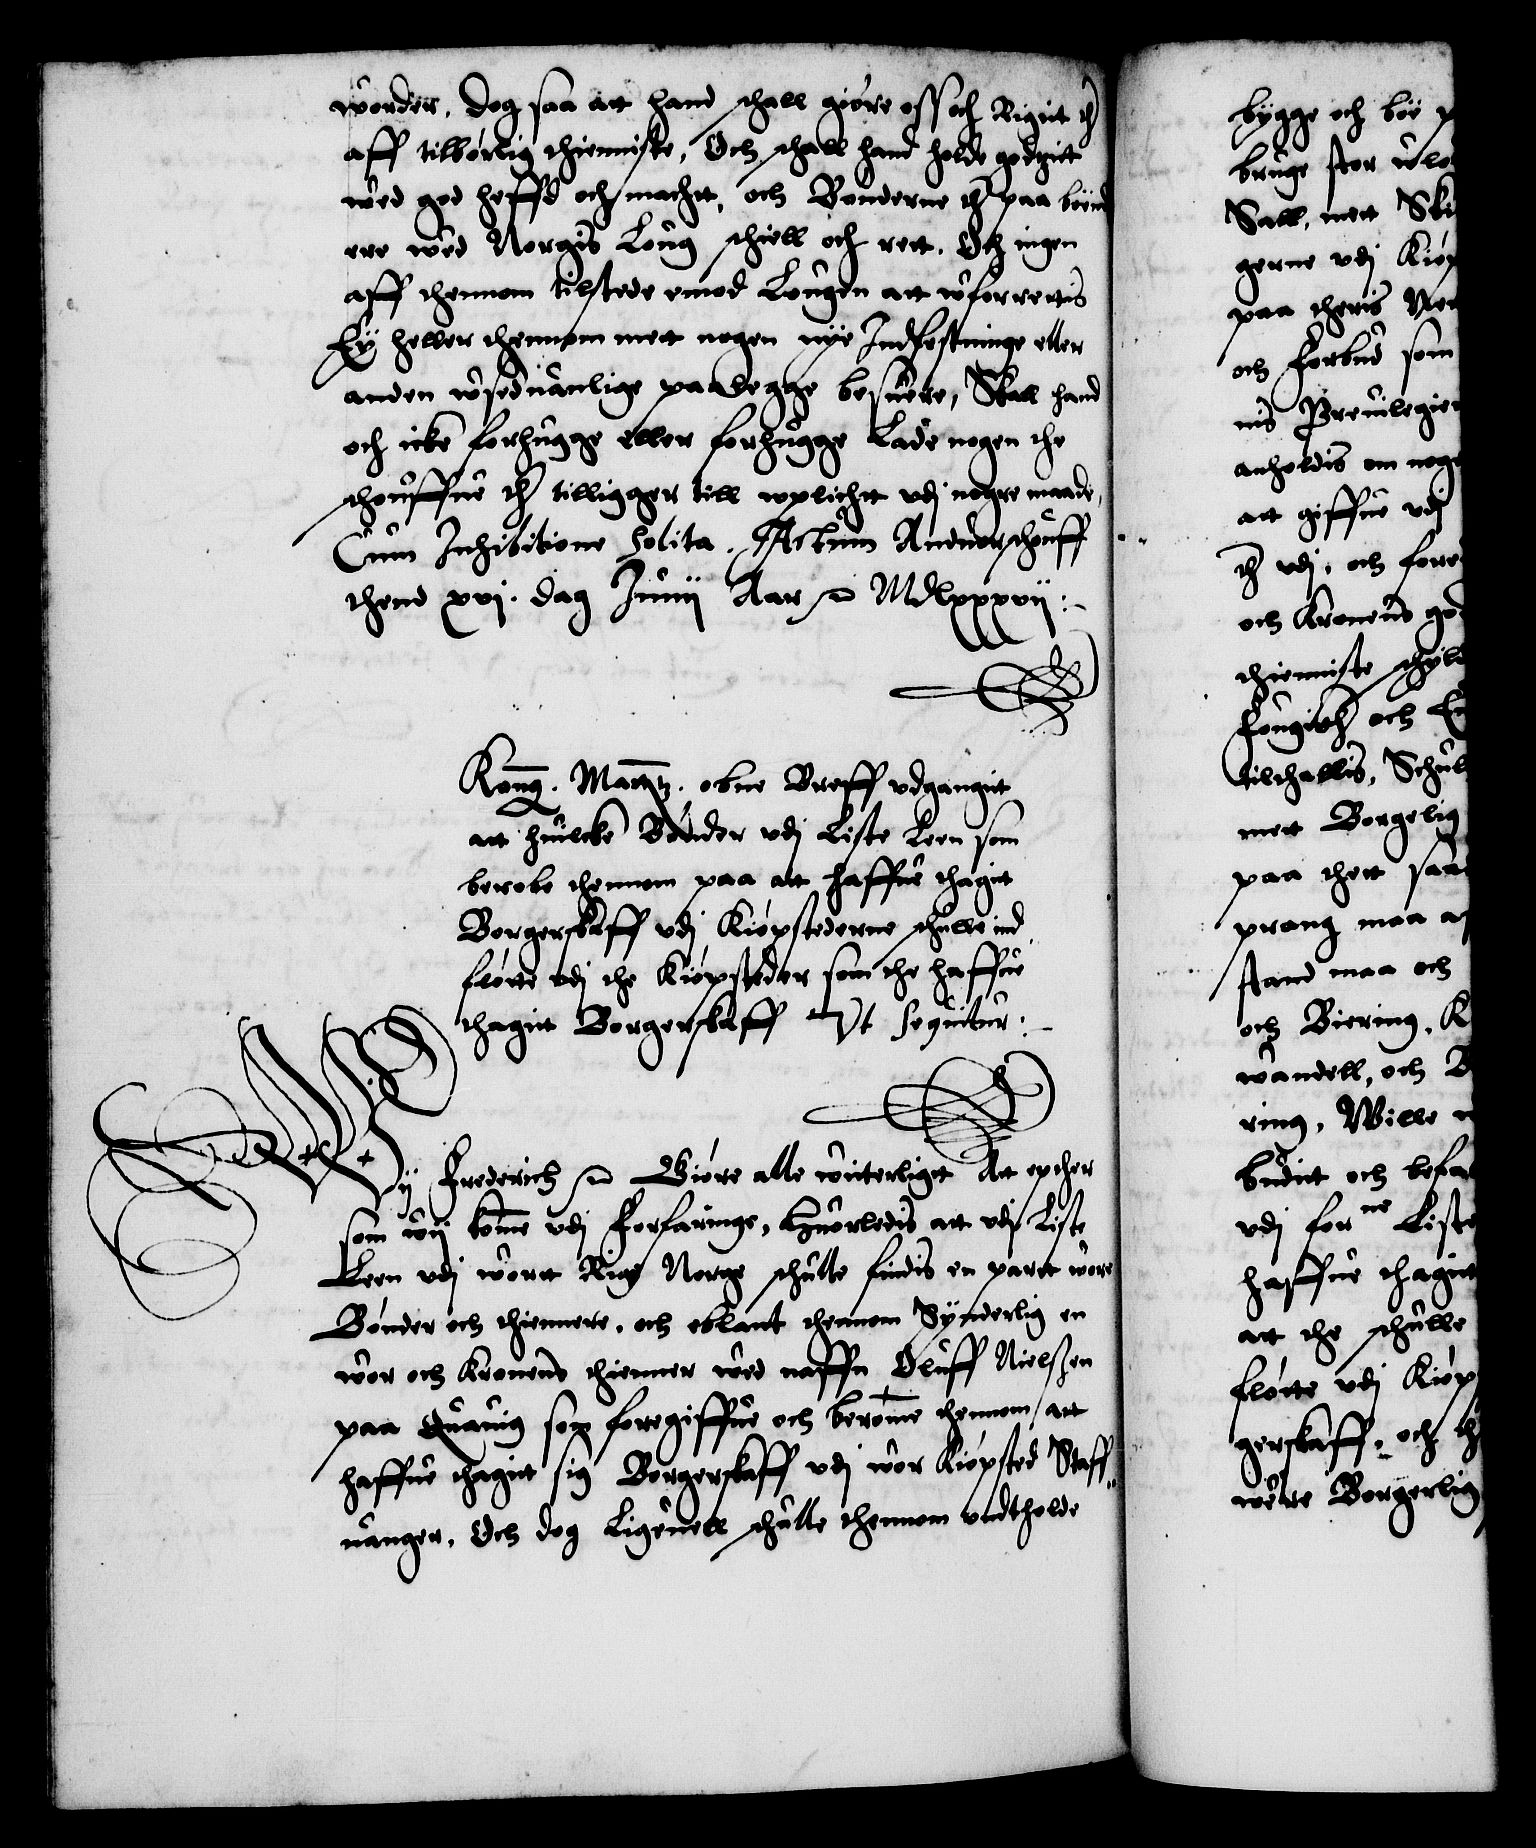 worder, Dog saa att hand schall giøre oss och Rigit ther
aff tilbørlig thienniste, Och schall hand holde godzit
wed god heffd och macht, och Bønderne ther paa boend
ere wed Norgis Loug schiell och rett. Och ingen
aff thennom tilstede emod Lougen att wforrettis
Ey heller thennom mett nogen nye Indfestninge eller
anden wseduanlige paalegge besuere, Skall hand
och icke forhugge eller forhugge Lade nogen the
schouffue ther tilligger till wplicht vdj nogre maade,
Cum Inhibitione solita. Actum Anduorschouff
thend xvj. dag Junij Aar &c MDlxxxvij:
Kong. Maytz. obne Breff vdgangit
att huilcke Bønder vdj Liste Leen som
berobe thennom paa att haffue thagit
Borgerskaff vdj Kiøpstederne schulle ind
fløtte vdj the Kiøpsteder som the haffue
thagit Borgerskaff Vt Sequitur:
Wij Frederich &c Giøre alle witterligt Att epther
som wij komme vdj Forfaringe, Huorledis att vdj Liste
Leen vdj wort Rige Norge schulle findis en paret wore
Bønder och thiennere, och eblant thennom Synderlig en
wor och Kronens thienner wed naffn Oluff Nielszen
paa Quauig som foregiffue och berømme thennom att
haffue thagit sig Borgerskaff vdj wor Kiøpsted Staff-
uanger, Och dog Ligeuell schulle thennom vndtholde
bygge och boe
bruge stor
Sall, mett
gerne vdj
paa theris
och Forbud som
nis
anholdis om
att giffue vdj
ther vdj, och
och Kronens
thienniste
Fougither och
tilthallis,
mett Borgelig
paa thett
prang maa
stand maa och
och Biering,
wandell, och
ring, Wille
budit och
vdj for ne Liste
haffue thagit
att the schulle
fløtte vdj
gerskaff, och
were Borgerlig